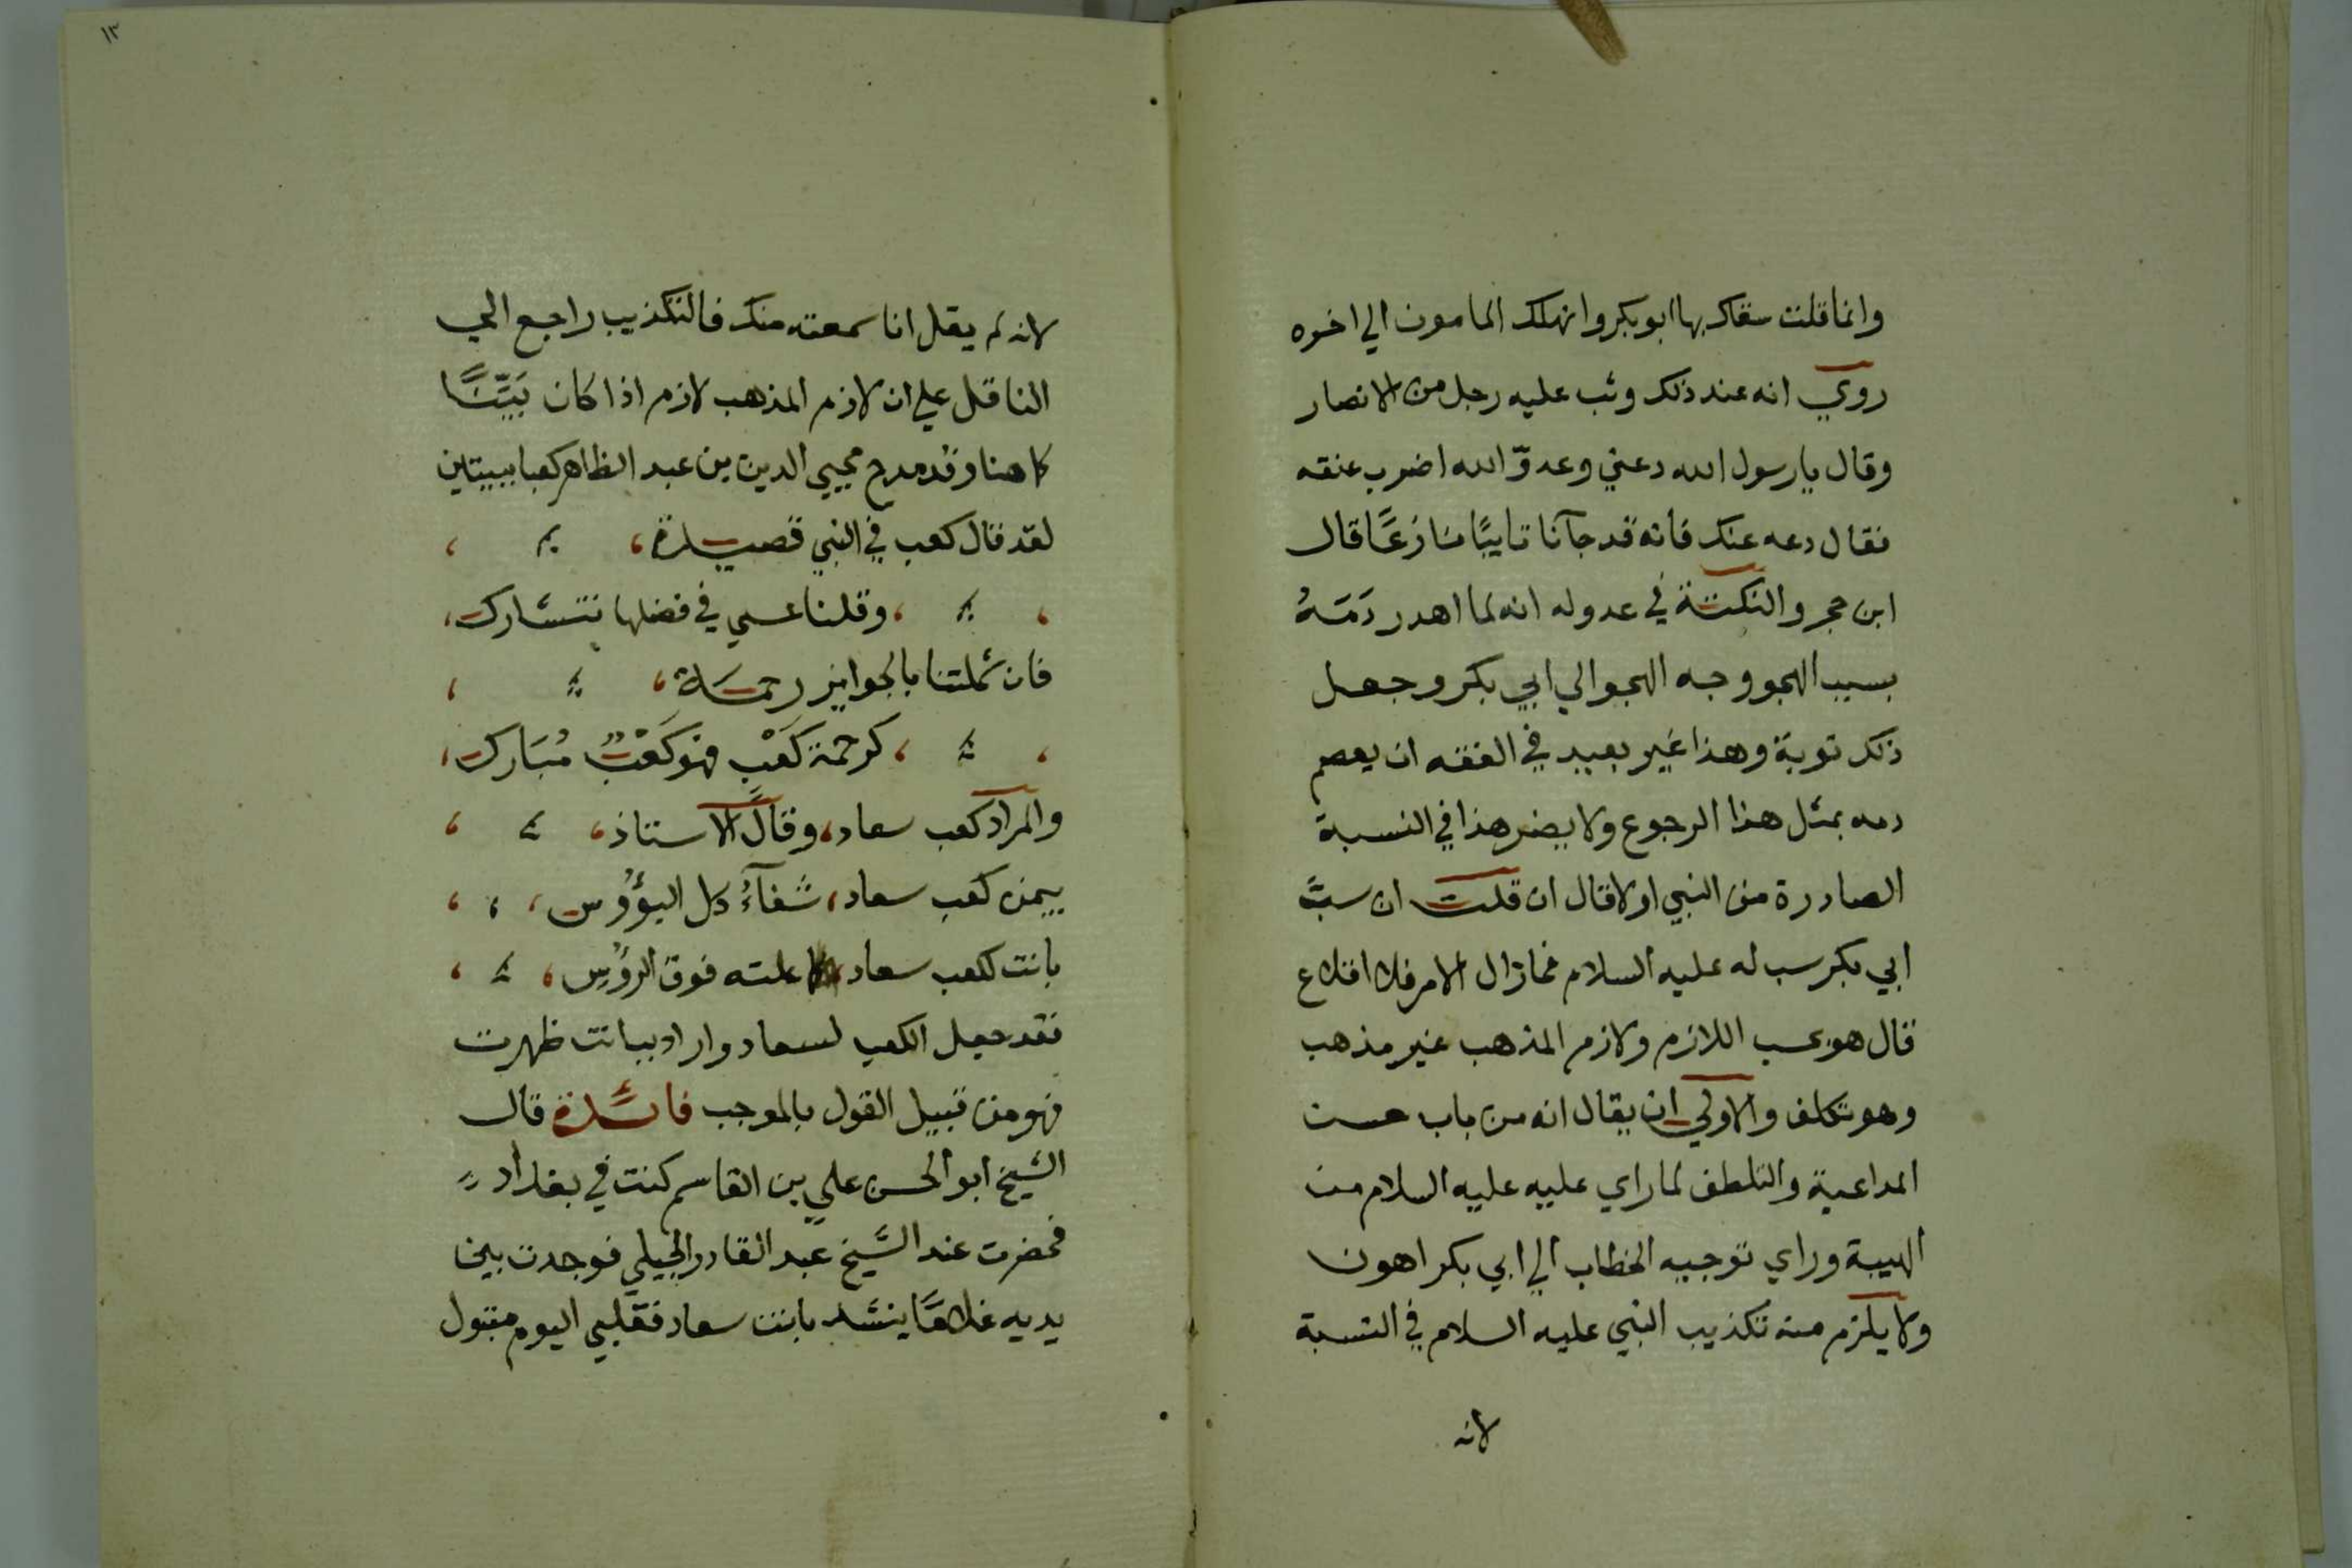 وانما قلت سقاك بها ابو بكر وانهلك المامون الي اخره
روي انه عند ذلك وثب عليه رجل من الانصار
وقال يا رسول الله دعني وعدوّ الله اضرب عنقه
فقال دعه عنك فانه قد جآنا تايبًا نازعًا قال
ابن حجر والنكتة في عدوله انه لما اهدر دَمَهُ
بسبب الهجو وجه الهجو الي ابي بكر وجعل
ذلك توبة وهذا غير بعيد في الفقه ان يعصم
دمه بمثل هذا الرجوع ولا يضر هذا في النسبة
الصادرة من النبي اولا قال ان قلت ان سبَّ
ابي بكر سب له عليه السلام فمازال الامر فلا اقلاع
قال هو بحسب اللازم ولازم المذهب غير مذهب
وهو تكلف والاولي ان يقال انه من باب حسن
المداعبة والتلطف لما راي عليه عليه السلام من
الهيبة وراي توجيه الخطاب الي ابي بكر اهون
ولا يلزم منه تكذيب النبي عليه السلام في النسبة
لانه
١٣
لانه لم يقل انا سمعته منك فالتكذيب راجع الي
الناقل علي ان لازم المذهب لازم اذا كان بَيِّنًا
كما هنا وقد مدح محيي الدين بن عبد الظاهر كعبا ببيتين
لقد قال كعب في النبي قصيدة،
، وقلنا عسي في فضلها نتشارك،
فان شملتنا بالجوايز رحمَة،
، كرحمة كَعْبٍ فهو كَعْبٌ مُبَارك،
والمراد كعب سعاد، وقال الاستاذ،
بيمن كعب سعاد، شفآءُ كل البؤُوس،
بانت لكعب سعاد، علته فوق الرؤُس،
فقد جعل الكعب لسعاد واراد ببانت ظهرت
فهو من قبيل القول بالموجب فائدة قال
الشيخ ابو الحسن علي بن القاسم كنت في بغداد
فحضرت عند الشيخ عبد القادر الجيلي فوجدت بين
يديه غلامًا ينشد بانت سعاد فقلبي اليوم متبول